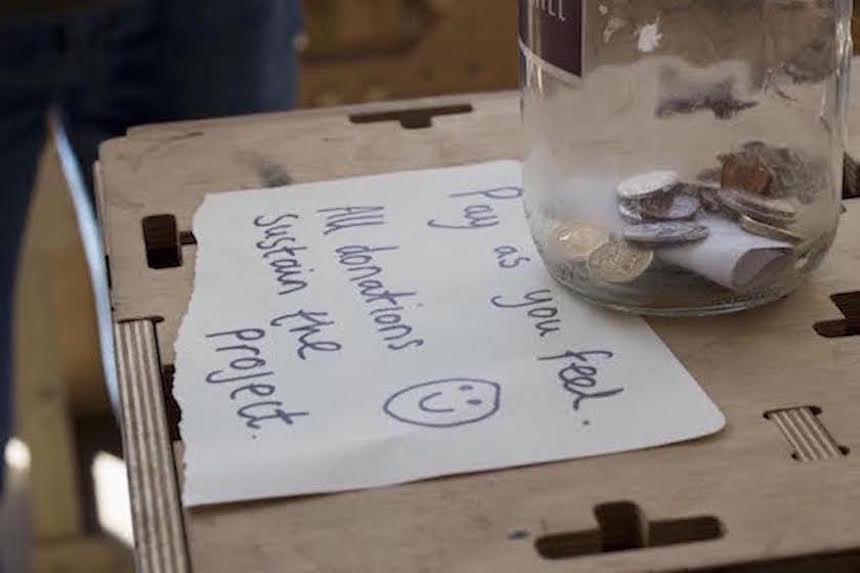 Pay as you feel.
All donations
sustain the
project.